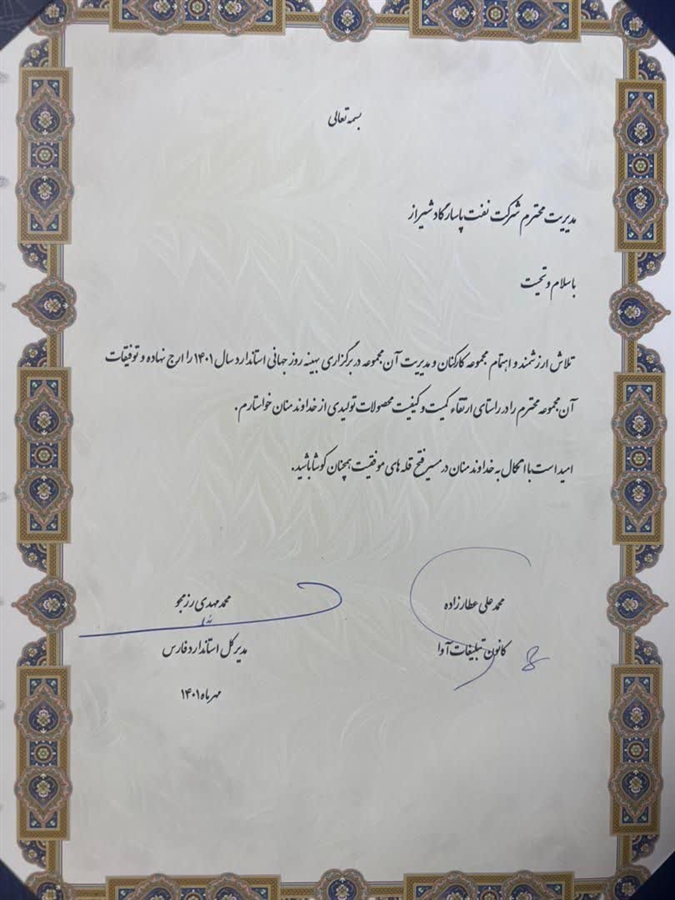 بسمه تعالی
مدیریت محترم شرکت نفت پاسارگاد شیراز
با سلام و تحیت
تلاش ارزشمند و اهتمام مجموعه کارکنان و مدیریت آن مجموعه در برگزاری بهینه روز جهانی استاندارد سال ۱۴۰۱ را ارج نهاده و توفیقات
آن مجموعه محترم را در راستای ارتقاء کمیت و کیفیت محصولات تولیدی از خداوند منان خواستارم.
امید است با اتکال به خداوند منان در مسیر فتح قله های موفقیت همچنان کوشا باشید.
محمد علی عطارزاده
کانون تبلیغات آوا
محمد مهدی رزمجو
مدیر کل استاندارد فارس
مهر ماه ۱۴۰۱